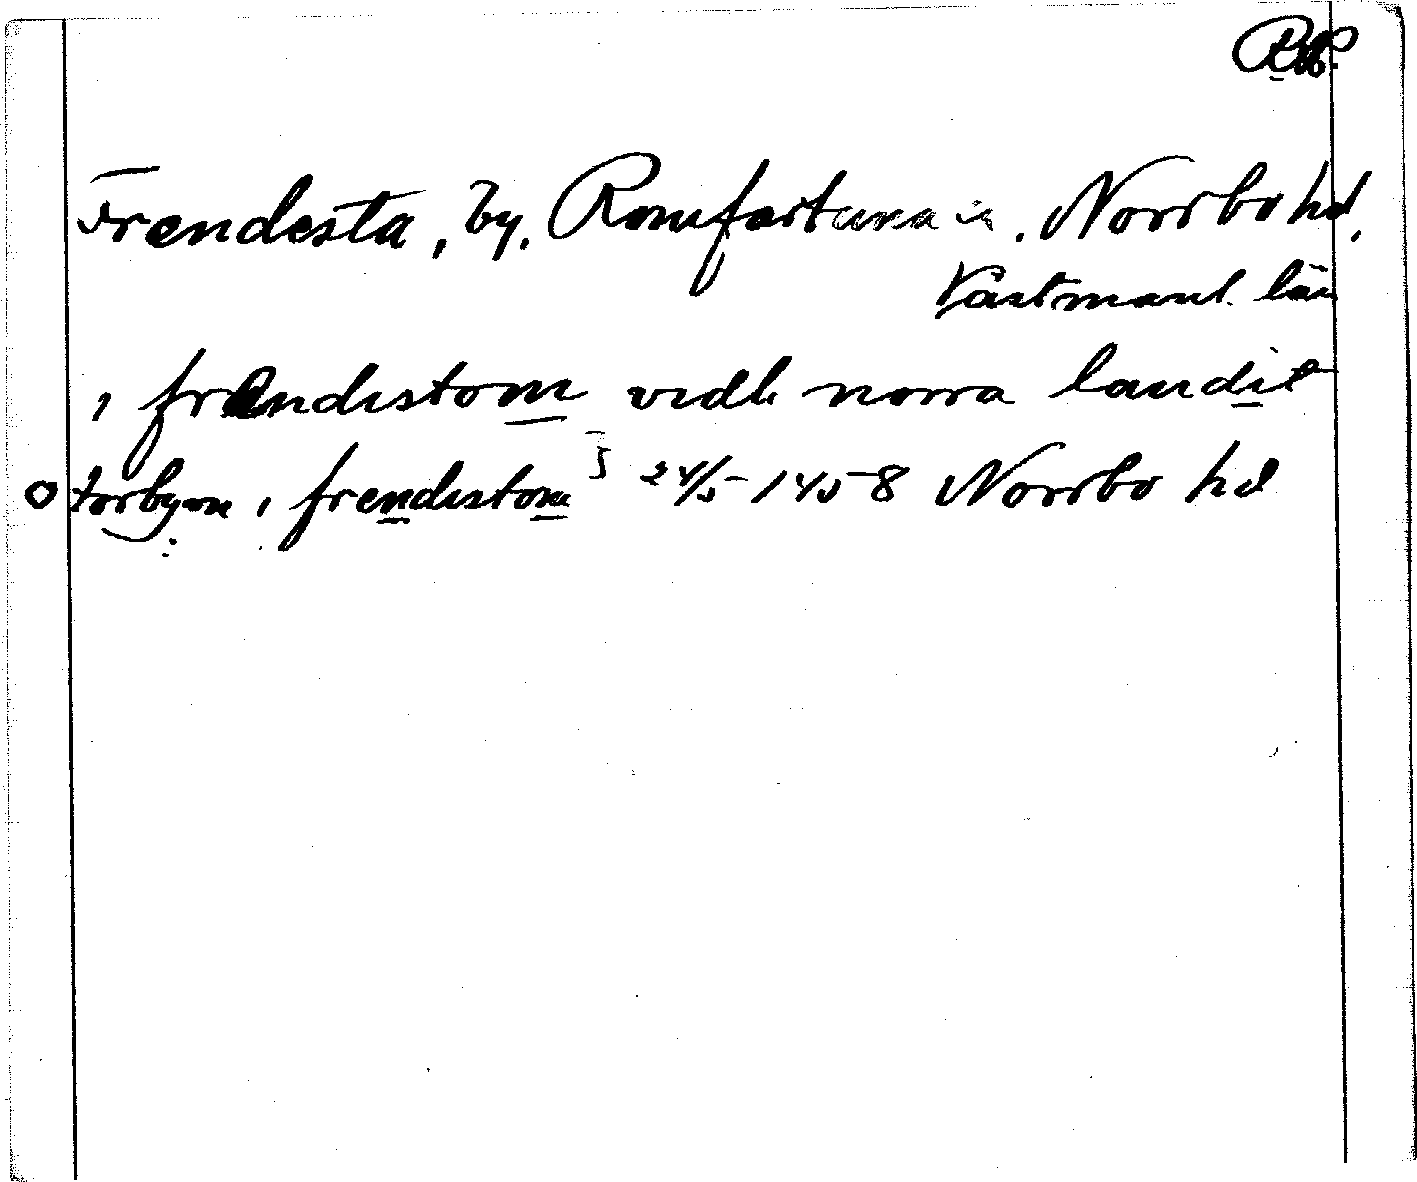 Frendesta, by, Romfartuna sn. Norrbo hd.
Västmanl. län
i frendistom vidh norra landit
torbyrn i frendistom 24/5 1458 Norrbo hd